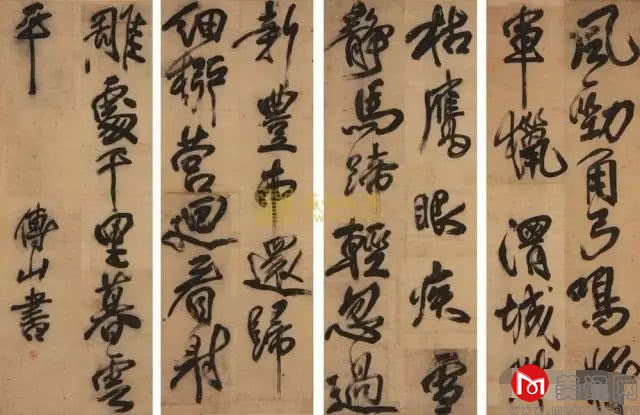 風勁角弓鳴將
軍獵渭城草
枯鷹眼疾雪
靜馬蹄輕忽過
新豐市還歸
細柳營迴看射
雕處千里暮雲
平
傅山書